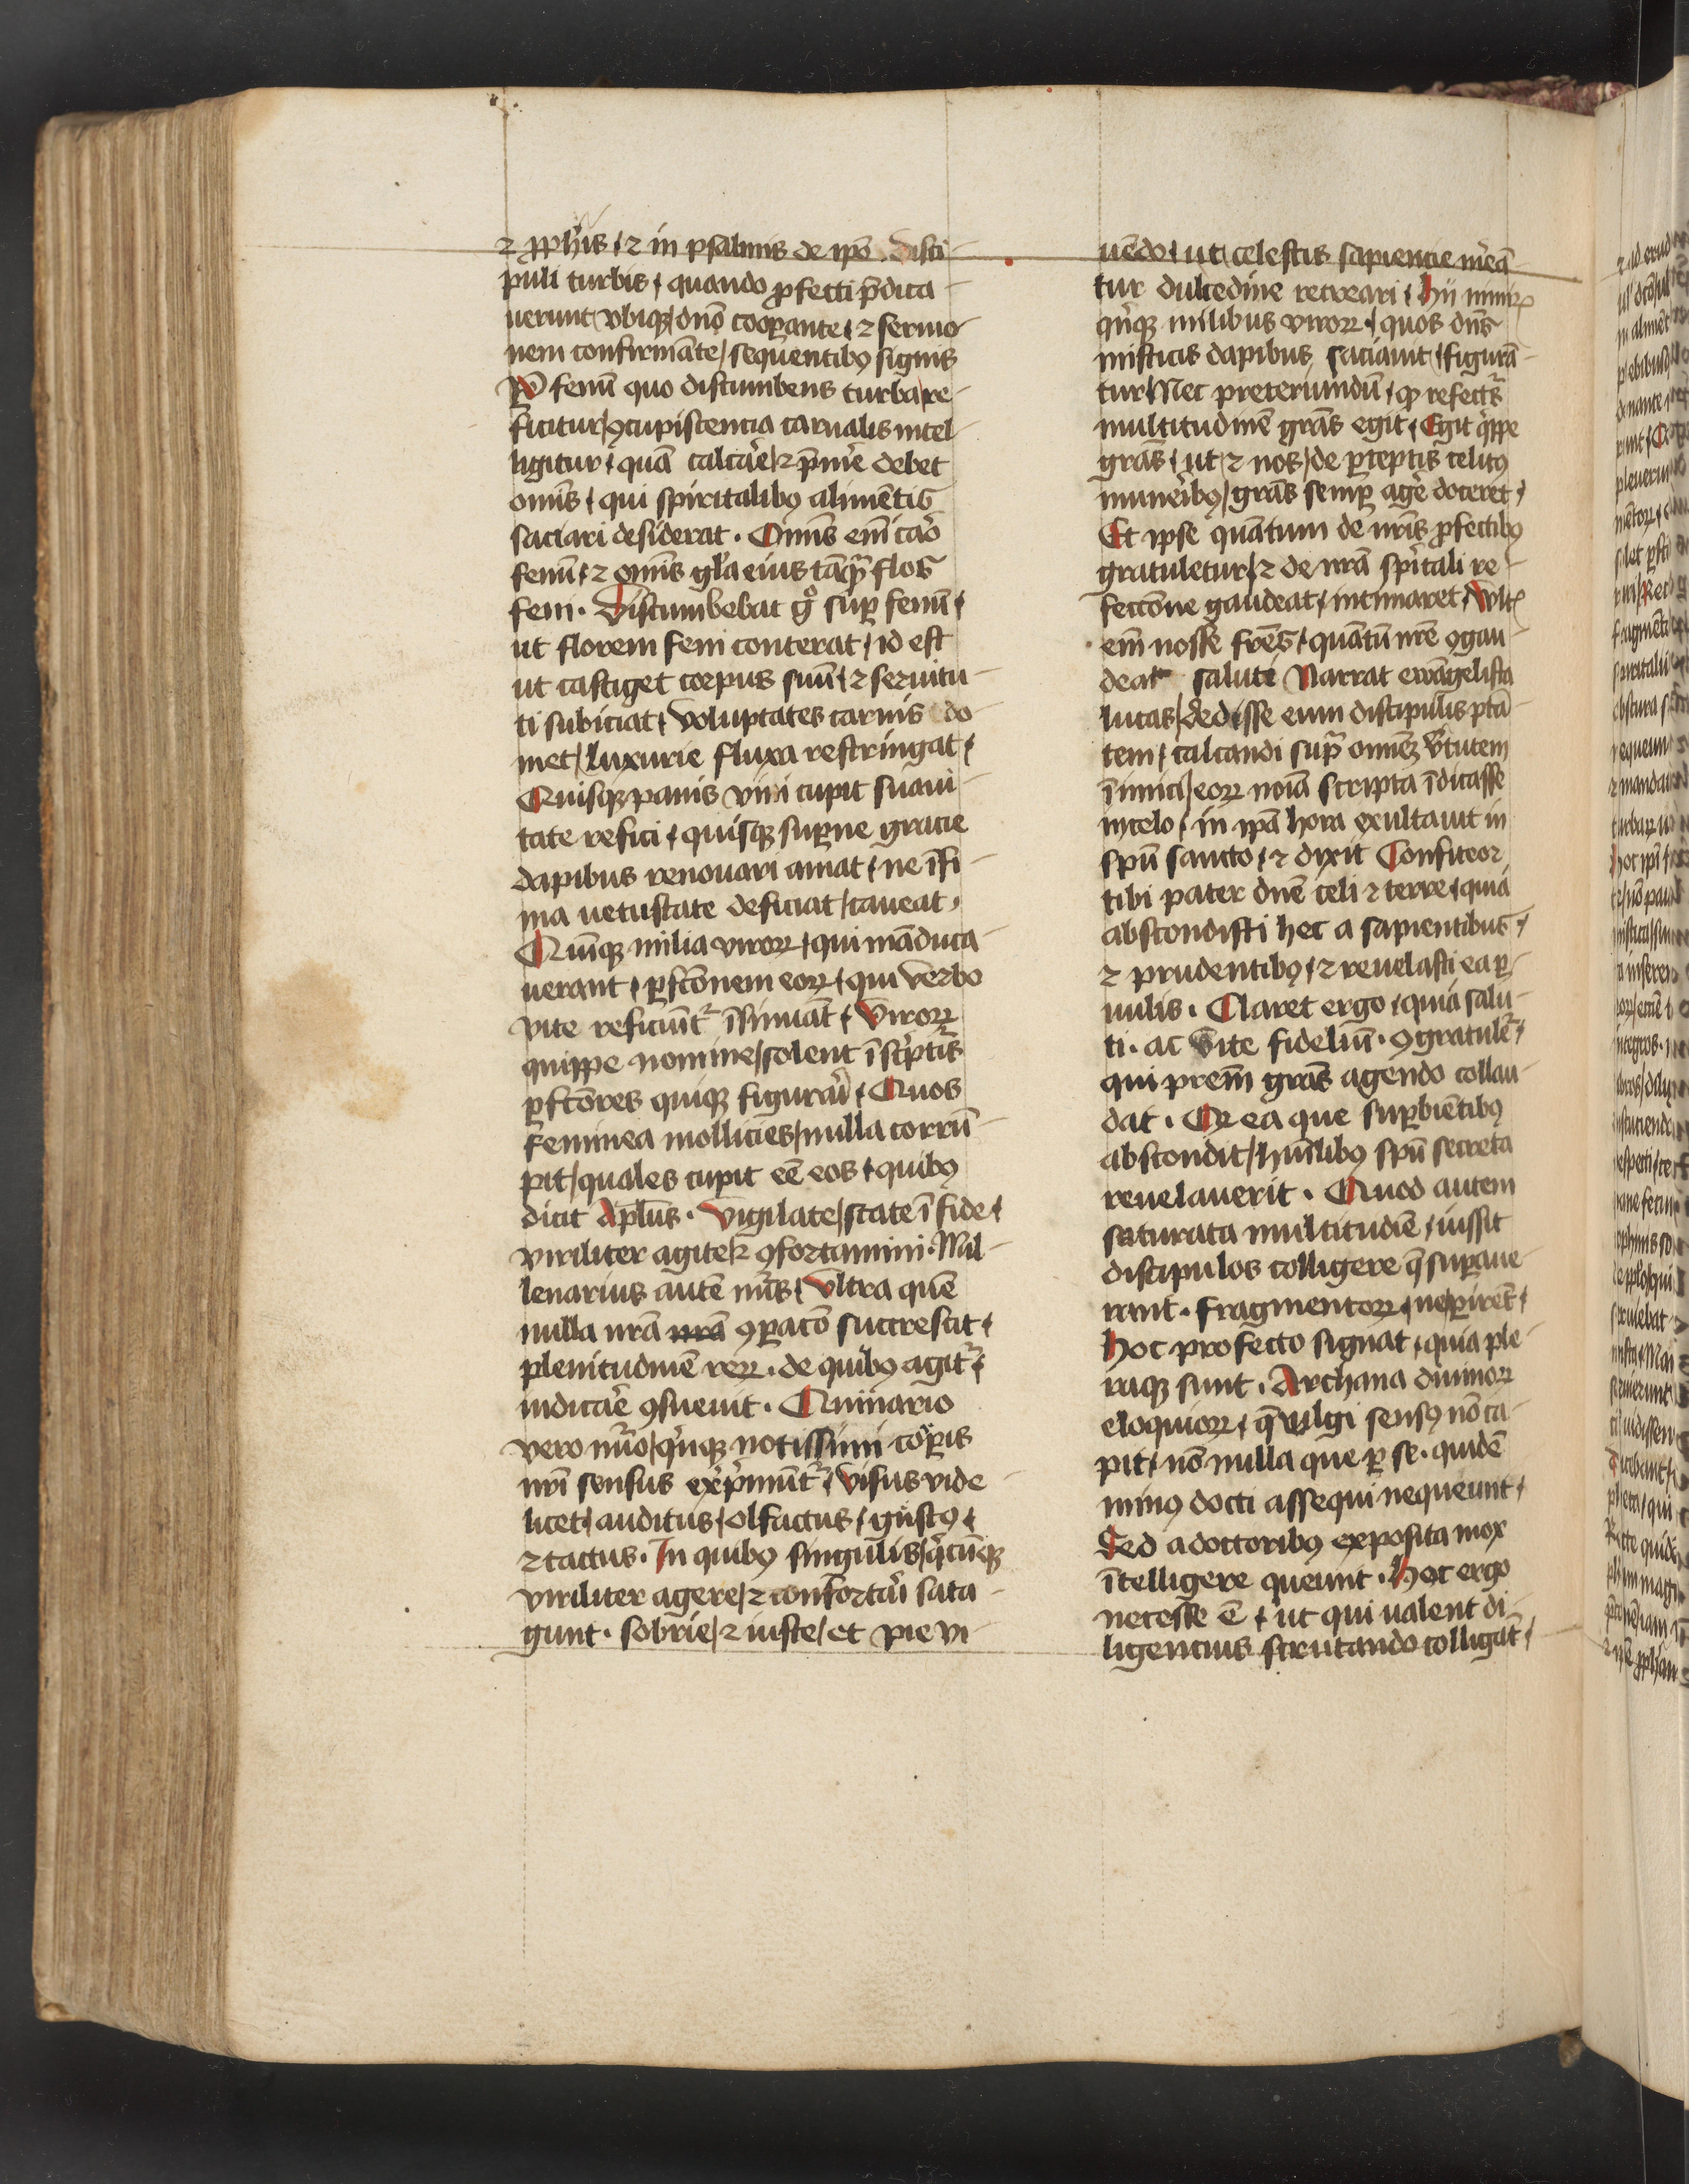 ⁊ ꝓph̄is / ⁊ in psalmis de ip̄o . disci-
puli turbis / quando ꝓfecti p̄dica-
uerunt vbiqꝫ / dn̄o cooꝑante / ⁊ sermo-
nem confirmāte / sequentibꝰ signis
Ꝑ fenū quo discumbens turba re-
ficitur / ꝯcupiscencia carnalis intel-
ligitur / quā calcar̄e / ⁊ p̄mer̄e debet
om̄is / qui spiritalibꝰ alimētis
saciari desiderat . Om̄is em̄ caro
fenū / ⁊ om̄is gl̄a eius tāqꝫ flos
feni . Discumbebat gͦ suꝑ fenū /
ut florem feni conterat / id est
ut castiget corpus suū / ⁊ seruitu-
ti subiciat / voluptates carnis do-
met / luxurie fluxa restringat /
Quisqꝫ panis viui cupit suaui-
tate refici / quisqꝫ suꝑne gracie
dapibus renouari amat / ne īfi-
ma uetustate deficiat / caueat .
Quīqꝫ milia viroꝝ / qui māduca-
uerant / ꝑfc̄onem eoꝝ / qui verbo
vite reficiūt᷑ īsinuāt / viroꝝ
quippe nomine / solent ī sc̄pturis
ꝑfc̄ores quiqꝫ figurari / Quos
feminea mollicies / nulla corrū-
pit / quales cupit eē eos / quibꝰ
dicit Apl̄us . Vigilate / state ī fide /
viriliter agite / ⁊ ꝯfortamini . Mil-
lenarius autē nūs / vltra quē
nulla nr̄a nr̄a ꝯꝑacō succrescit /
plenitudinē reꝝ . de quibꝰ agit᷑ /
indicar̄e ꝯsueuit . Quinario
vero nūo / qⁱnqꝫ notissimi corꝑis
nr̄i sensus exp̄munt᷑ / visus vide-
licet / auditus / olfactus / gustꝰ /
⁊ tactus . In quibꝰ singulis / qⁱcūqꝫ
viriliter agere / ⁊ confortari sata-
gunt . sobrie / ⁊ iuste / et pie vi-
uēdo / ut celestis sapiencie mereā-
tur dulcedine recreari / hii nimiꝝ
qⁱnqꝫ milibus viroꝝ / quos dn̄s
misticis dapibus saciauit / figurā-
tur / Nec pretereundū / ꝙ refect᷑s
multitudinē gr̄as egit / Egit qⁱppe
gr̄as / ut ⁊ nos / de ꝑceptis celitꝰ
muneribꝰ / gr̄as semꝑ ager̄e doceret /
Et ipse quantum de nr̄is ꝓfectibꝰ
gratuletur / ⁊ de nr̄a spiritali re-
fectōne gaudeat / intimaret / vltꝭ
em̄ nosse fr̄es / quātū nr̄e ꝯgau-
deat saluti Narrat ewāgelista
lucas / dedisse eum discipulis ptā-
tem / calcandi supᷓ omnē v̄tutem
īimici / eoꝝ noīa scripta īdicasse
in celo / in ip̄a hora exultauit in
spū sancto / ⁊ dixit Confiteor
tibi pater dn̄e celi ⁊ terre / quia
abscondisti hec a sapientibus /
⁊ prudentibꝰ / ⁊ reuelasti ea ꝑ-
uulis . Claret ergo / quia salu-
ti . ac vite fidelium . ꝯgratulet᷑ /
qui prēm gr̄as agendo collau-
dat . Qꝛ ea que suꝑbiētibꝰ
abscondit / hūilibꝰ spū secreta
reuelauerit . Quod autem
saturata multitudīe / iussit
discipulos colligere q̄ suꝑaue-
runt . fragmentoꝝ / ne ꝑirēt /
hoc profecto signat / quia ple-
raqꝫ sunt . Archana diuinoꝝ
eloquioꝝ / q̄ vulgi sensꝰ nō ca-
pit / nō nulla que ꝑ se . quidē
minꝰ docti assequi nequeunt /
Sed a doctoribꝰ exposita mox
ītelligere queunt . Hec ergo
necesse ē / ut qui ualent di-
ligencius scrutando colligāt /